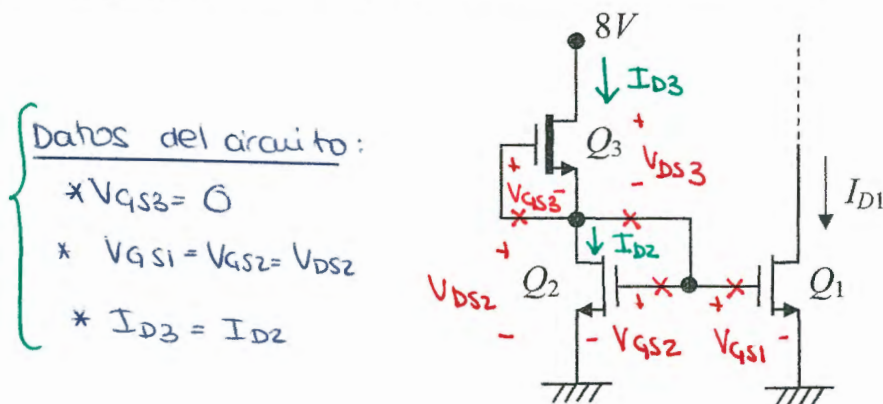 Datos del circuito:
* VGS3 = 0
* VGS1 = VGS2 = VDS2
* ID3 = ID2
8V
ID3
+
Q3
VDS3
-
+
VGS3
-
ID1
+
ID2
VDS2
-
Q2
+
VGS2
-
+
VGS1
-
Q1